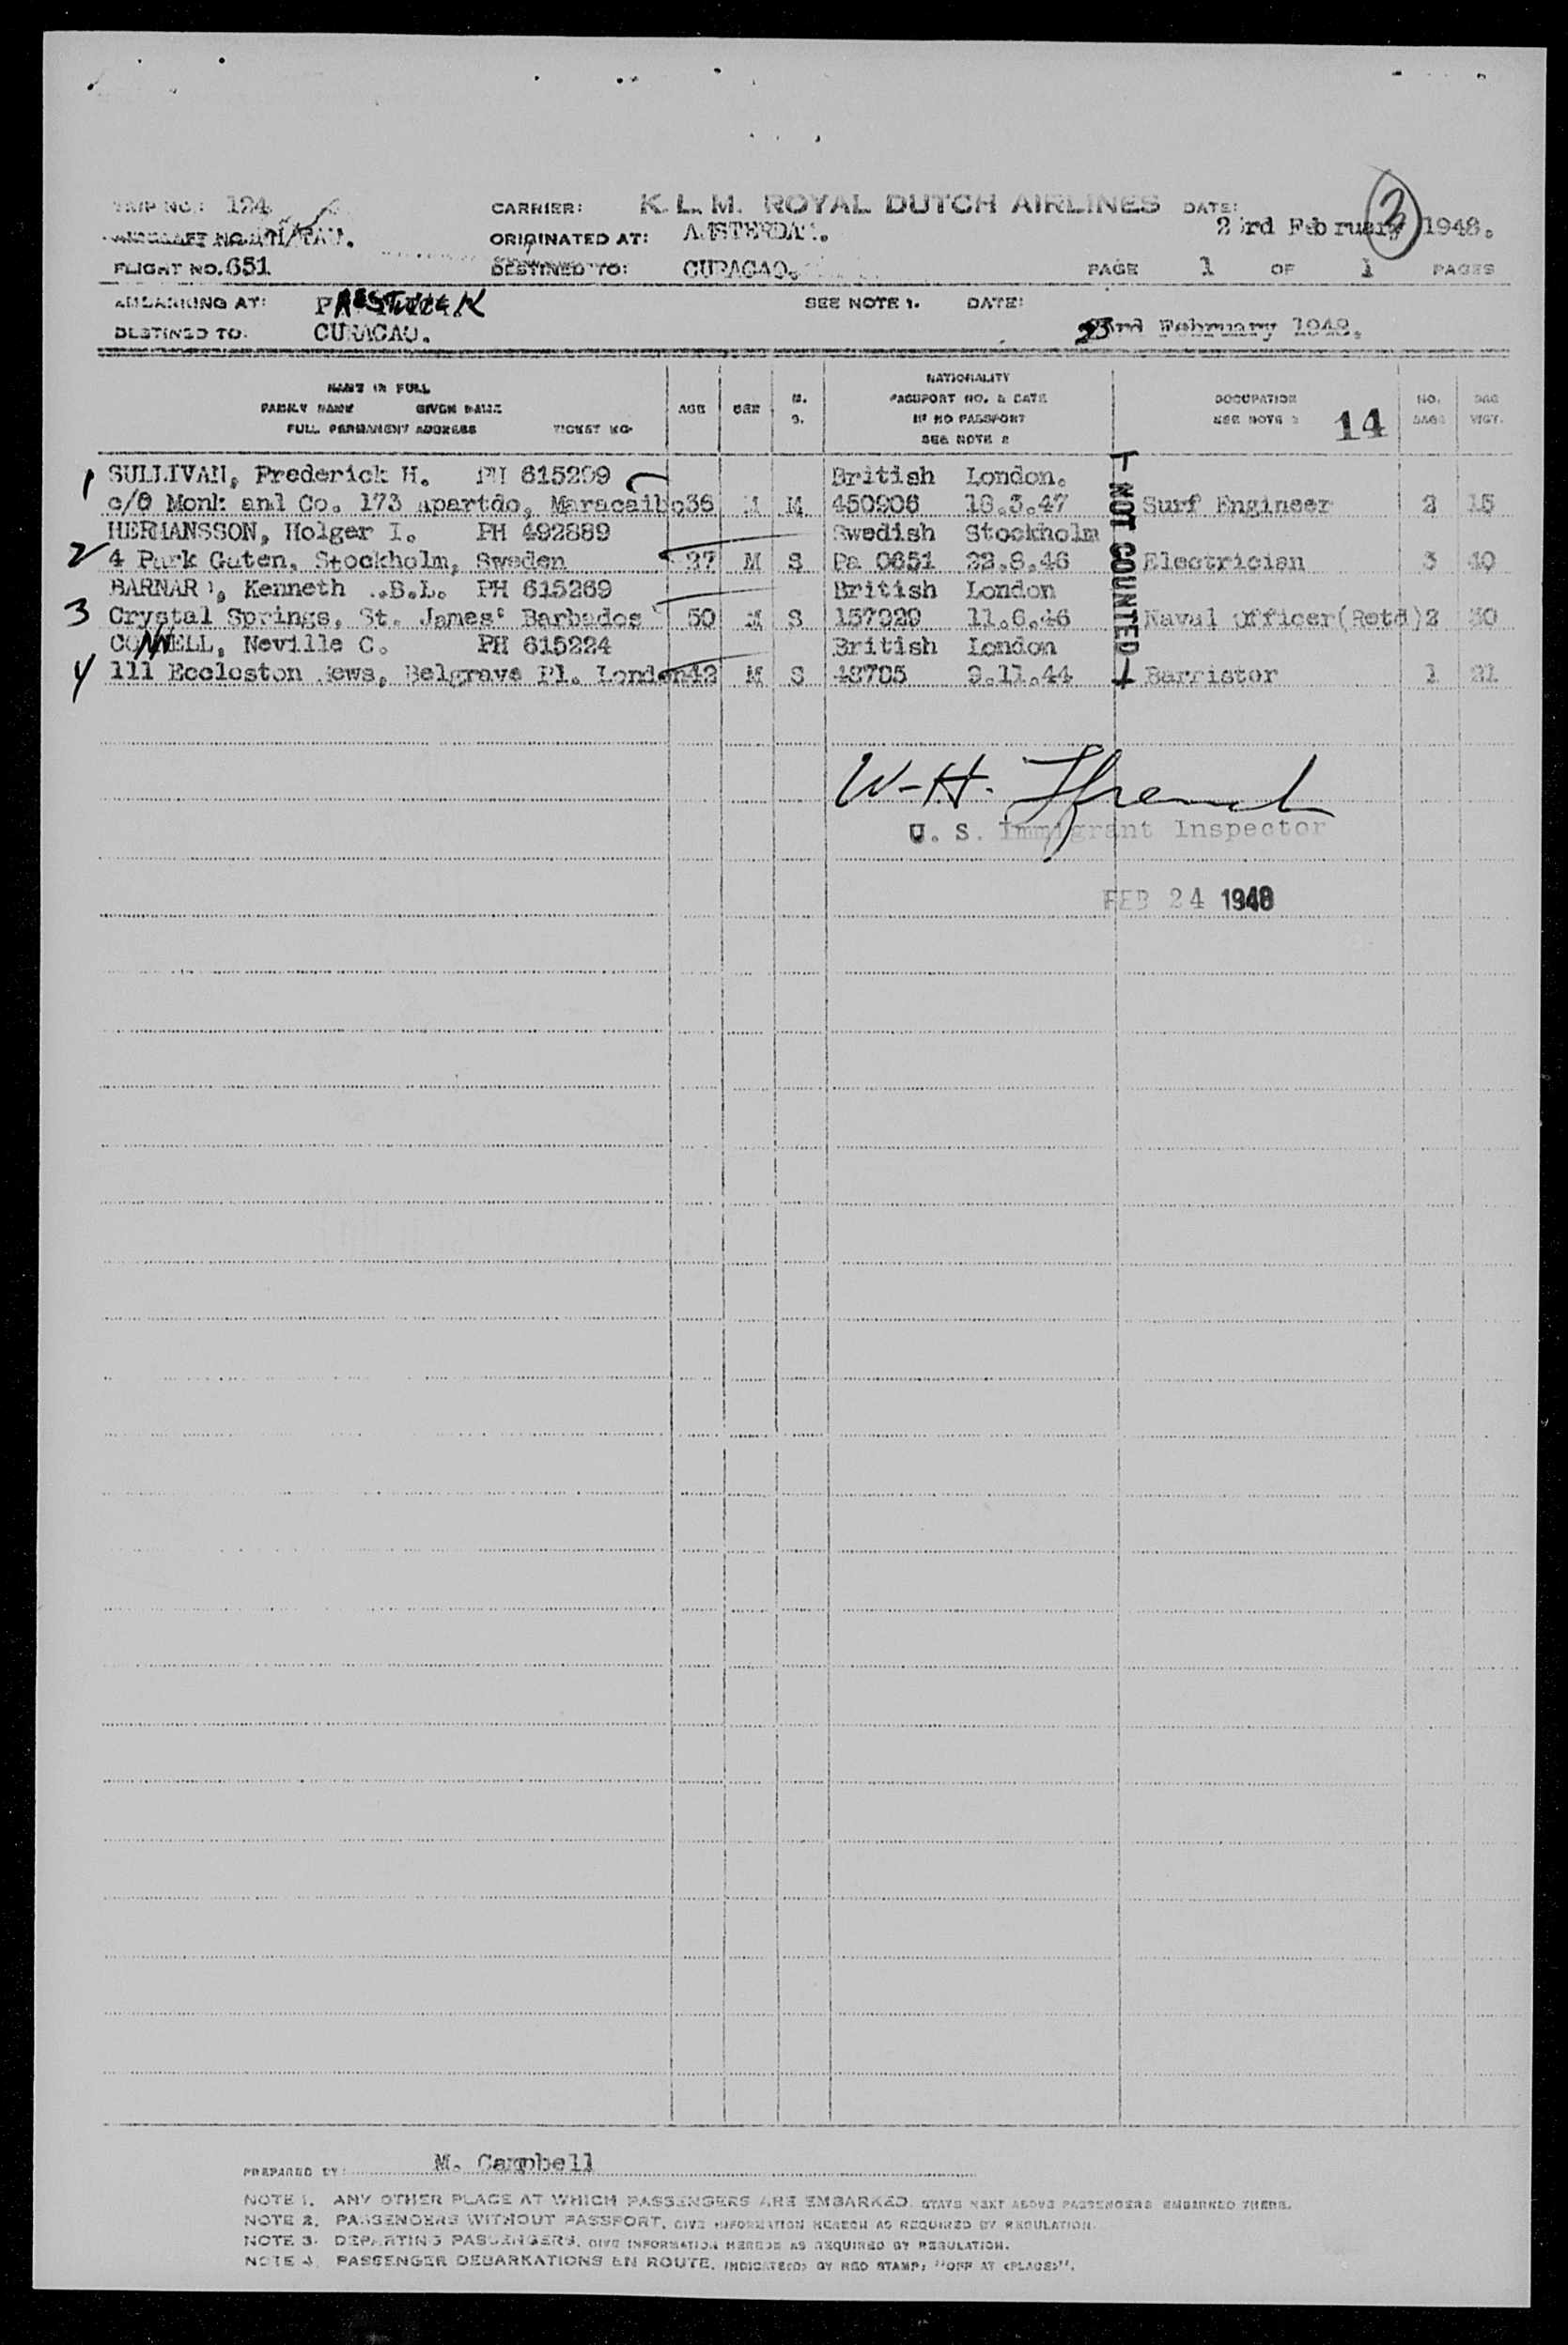 TRIP NO.: 124 CARRIER: K. L. M. ROYAL DUTCH AIRLINES DATE: 2
ORIGINATED AT: AMSTERDAM. 23rd February 1948.
FLIGHT NO. 651 DESTINED TO: CURACAO. PAGE 1 OF 1 PAGES
EMBARKING AT: PRESTWICK SEE NOTE 1. DATE:
DESTINED TO: CURACAO. 23rd February 1948.
NAME IN FULL
FAMILY NAME GIVEN NAME
FULL PERMANENT ADDRESS TICKET NO.
AGE SEX M. S.
NATIONALITY
PASSPORT NO. & DATE
IF NO PASSPORT
SEE NOTE 2
OCCUPATION
SEE NOTE 2 14
NO. BAGS BAG WGT.
1 SULLIVAN, Frederick H. PH 615299 British London.
c/o Monk and Co. 173 apartdo, Maracaibo 36 M M 450906 18.3.47 Surf Engineer 2 15
HERMANSSON, Holger I. PH 492889 Swedish Stockholm
2 4 Park Gaten, Stockholm, Sweden 27 M S Pa 0651 22.8.46 Electrician 3 40
BARNARD, Kenneth .B.L. PH 615269 British London
3 Crystal Springs, St. James' Barbados 50 M S 157929 11.6.46 Naval Officer(Retd) 2 30
CONNELL, Neville C. PH 615224 British London
4 111 Eccleston Mews, Belgrave Pl. London 42 M S 48705 9.11.44 Barrister 1 21
NOT COUNTED
W-H. Ffrench
U. S. Immigrant Inspector
FEB 24 1948
PREPARED BY: M. Campbell
NOTE 1. ANY OTHER PLACE AT WHICH PASSENGERS ARE EMBARKED, STATE NEXT ABOVE PASSENGERS EMBARKED THERE.
NOTE 2. PASSENGERS WITHOUT PASSPORT, GIVE INFORMATION HEREON AS REQUIRED BY REGULATION.
NOTE 3. DEPARTING PASSENGERS, GIVE INFORMATION HEREON AS REQUIRED BY REGULATION.
NOTE 4. PASSENGER DEBARKATIONS EN ROUTE, INDICATE(D) BY RED STAMP: "OFF AT (PLACE)".